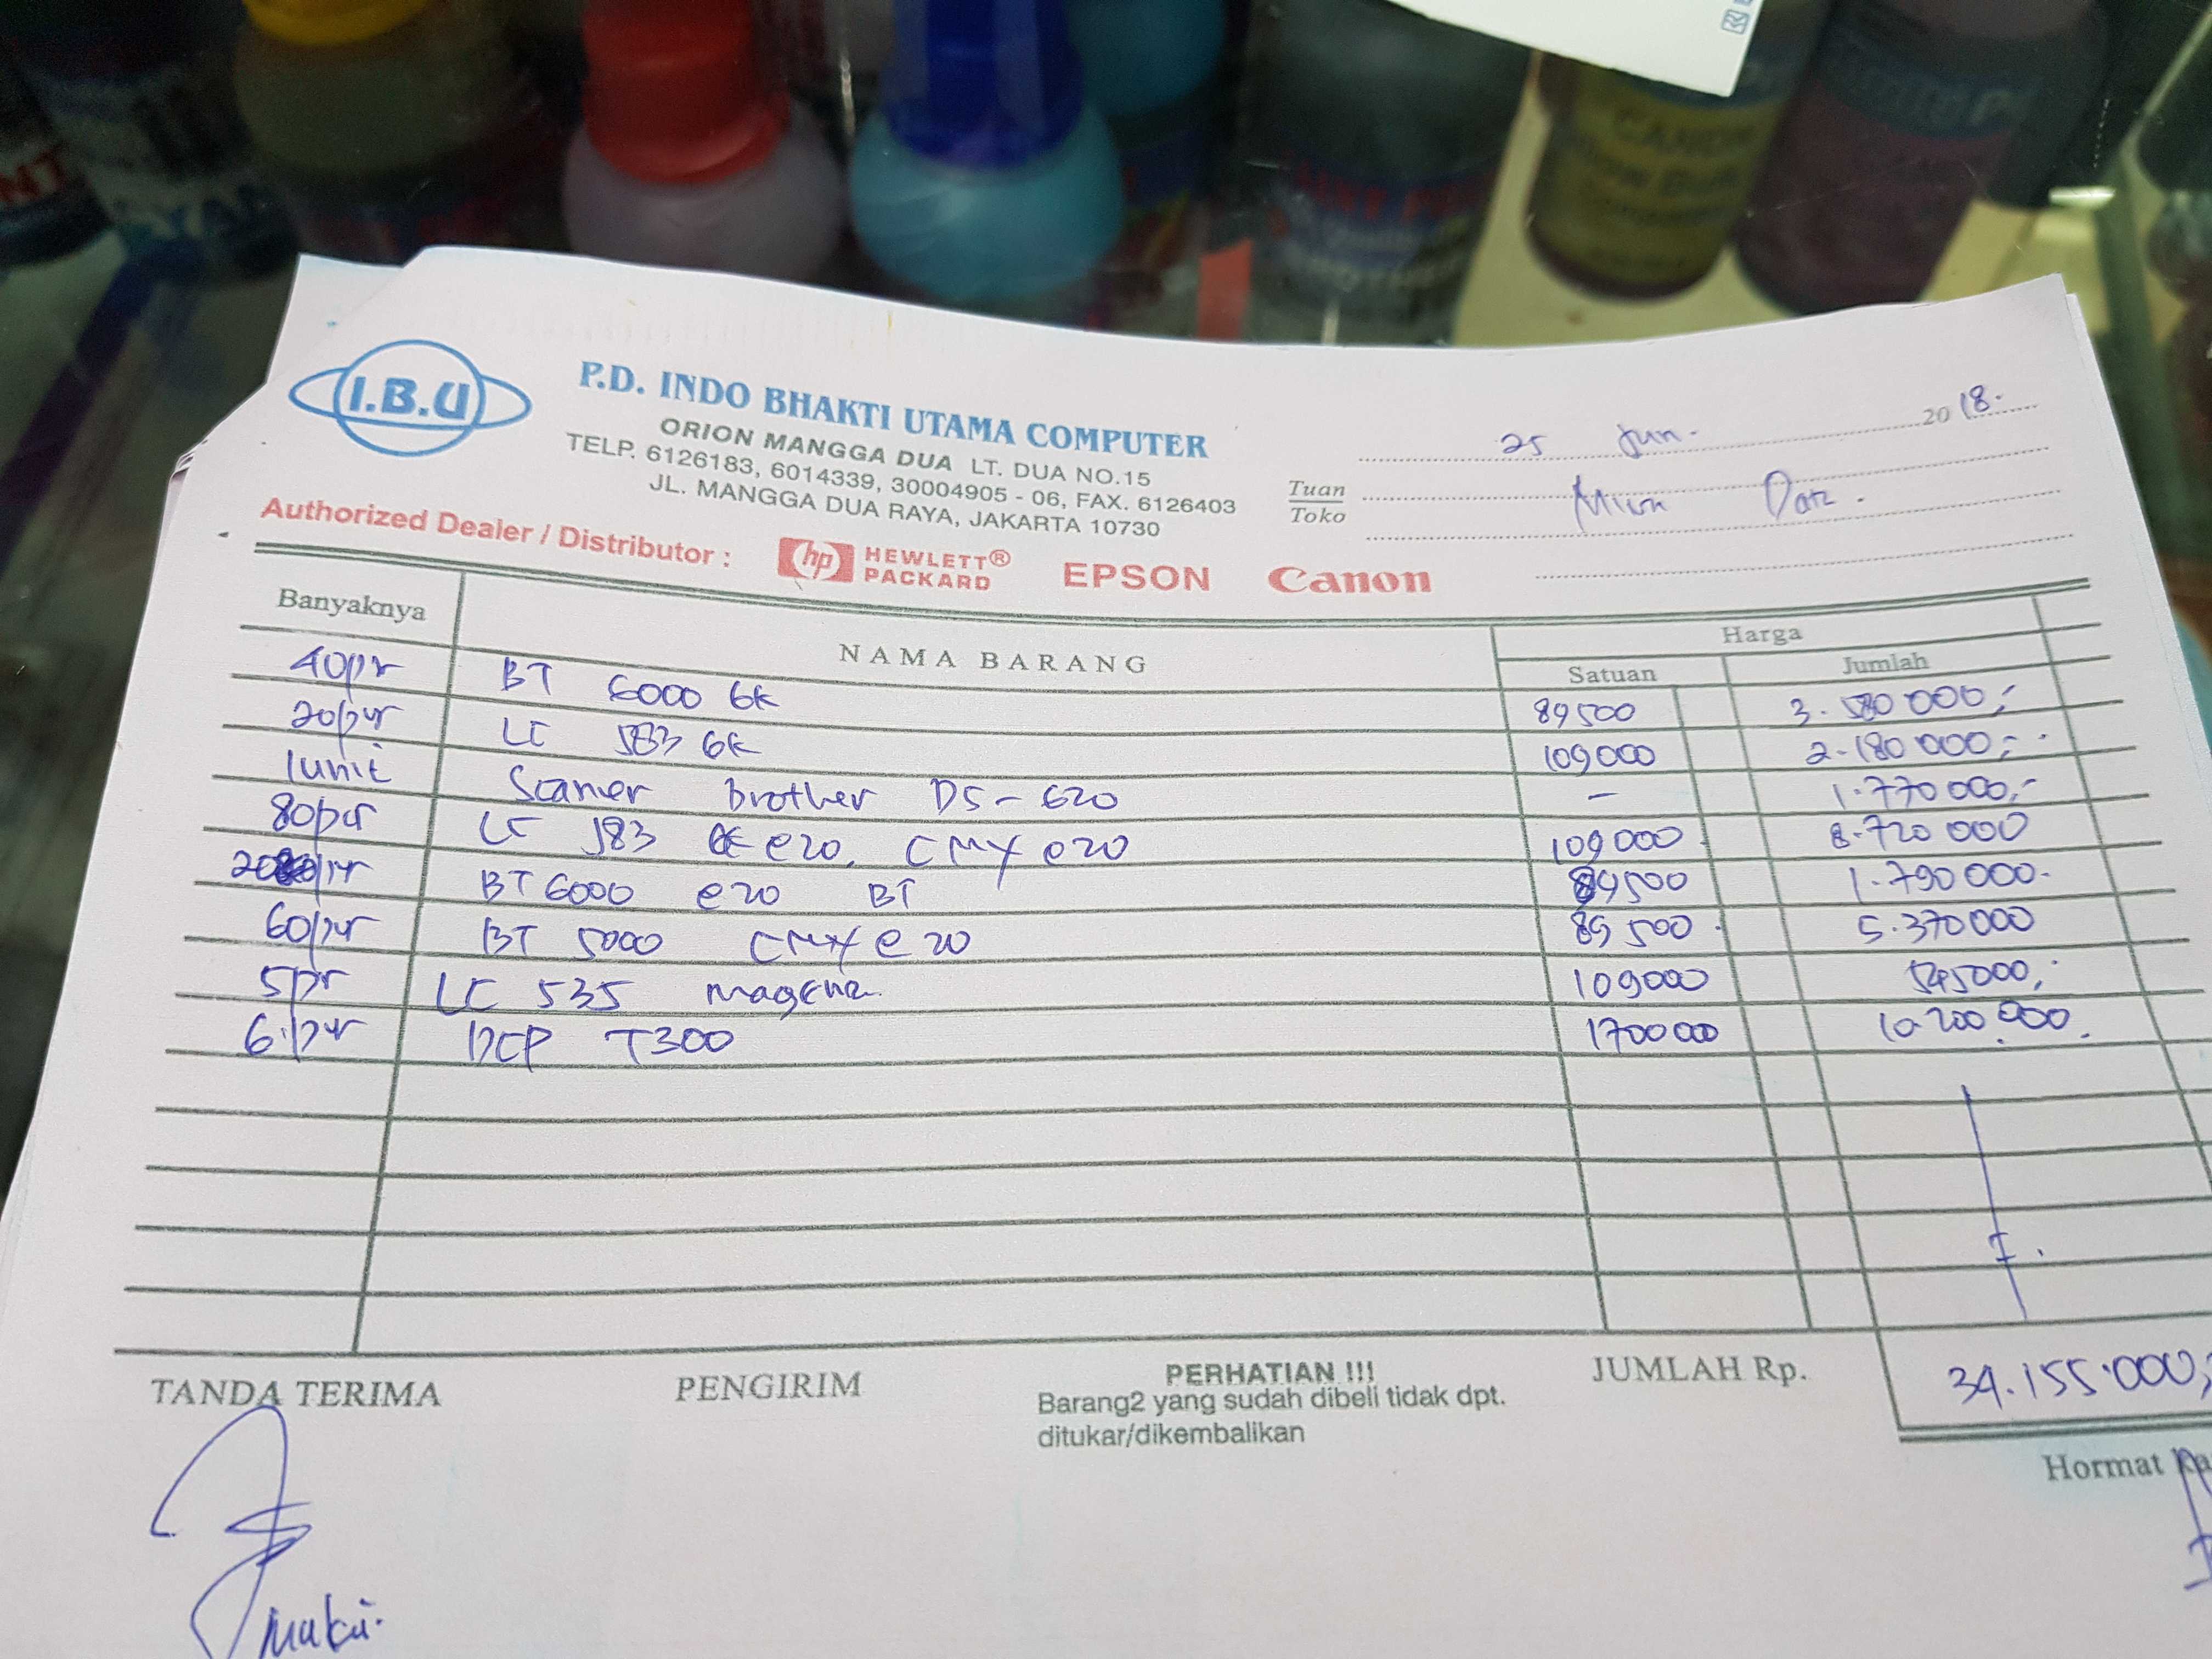 I.B.U
P.D. INDO BHAKTI UTAMA COMPUTER
ORION MANGGA DUA LT. DUA NO.15
TELP. 6126183, 6014339, 30004905 - 06, FAX. 6126403
JL. MANGGA DUA RAYA, JAKARTA 10730
25 Jun. 2018.
Tuan
Toko
Authorized Dealer / Distributor : hp HEWLETT® PACKARD EPSON Canon
Banyaknya NAMA BARANG Harga
Satuan Jumlah
40pr BT 6000 BK 89500 3.580000,-
20pcr LC 583 BK 109000 2.180000,-
1unit Scanner brother DS-620 - 1.770000,-
80pcr LC 583 BK e20, CMY e20 109000 8.720000
BT6000 e20 BT 89500 1.790000.
60pcr BT 5000 CMY e 20 89500 5.370000
5pr LC 535 109000 545000,-
6.pcr DCP T300 1700000 10.200.000.
TANDA TERIMA PENGIRIM PERHATIAN !!! JUMLAH Rp. 34.155.000,
Barang2 yang sudah dibeli tidak dpt.
ditukar/dikembalikan
Hormat
CANON